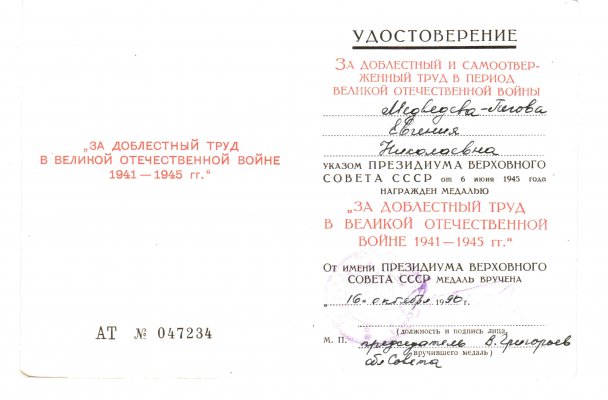 „ЗА ДОБЛЕСТНЫЙ ТРУД
В ВЕЛИКОЙ ОТЕЧЕСТВЕННОЙ ВОЙНЕ
1941—1945 гг.“
АТ № 047234
УДОСТОВЕРЕНИЕ
ЗА ДОБЛЕСТНЫЙ И САМООТВЕР-
ЖЕННЫЙ ТРУД В ПЕРИОД
ВЕЛИКОЙ ОТЕЧЕСТВЕННОЙ ВОЙНЫ
Медведева-
Евгения
Николаевна
УКАЗОМ ПРЕЗИДИУМА ВЕРХОВНОГО
СОВЕТА СССР от 6 июня 1945 года
НАГРАЖДЕН МЕДАЛЬЮ
„ЗА ДОБЛЕСТНЫЙ ТРУД
В ВЕЛИКОЙ ОТЕЧЕСТВЕННОЙ
ВОЙНЕ 1941—1945 гг.“
От имени ПРЕЗИДИУМА ВЕРХОВНОГО
СОВЕТА СССР МЕДАЛЬ ВРУЧЕНА
„16 “ октября 1990 г.
(должность и подпись лица,
М. П. председатель В. Григорьев
вручившего медаль)
облСовета